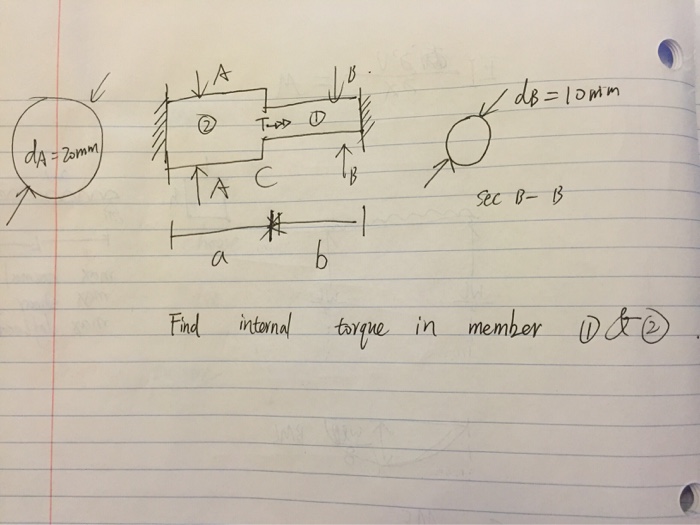 A
B
② T ①
dA = 20mm
dB = 10mm
A C B
sec B - B
a b
Find internal torque in member ① & ②.